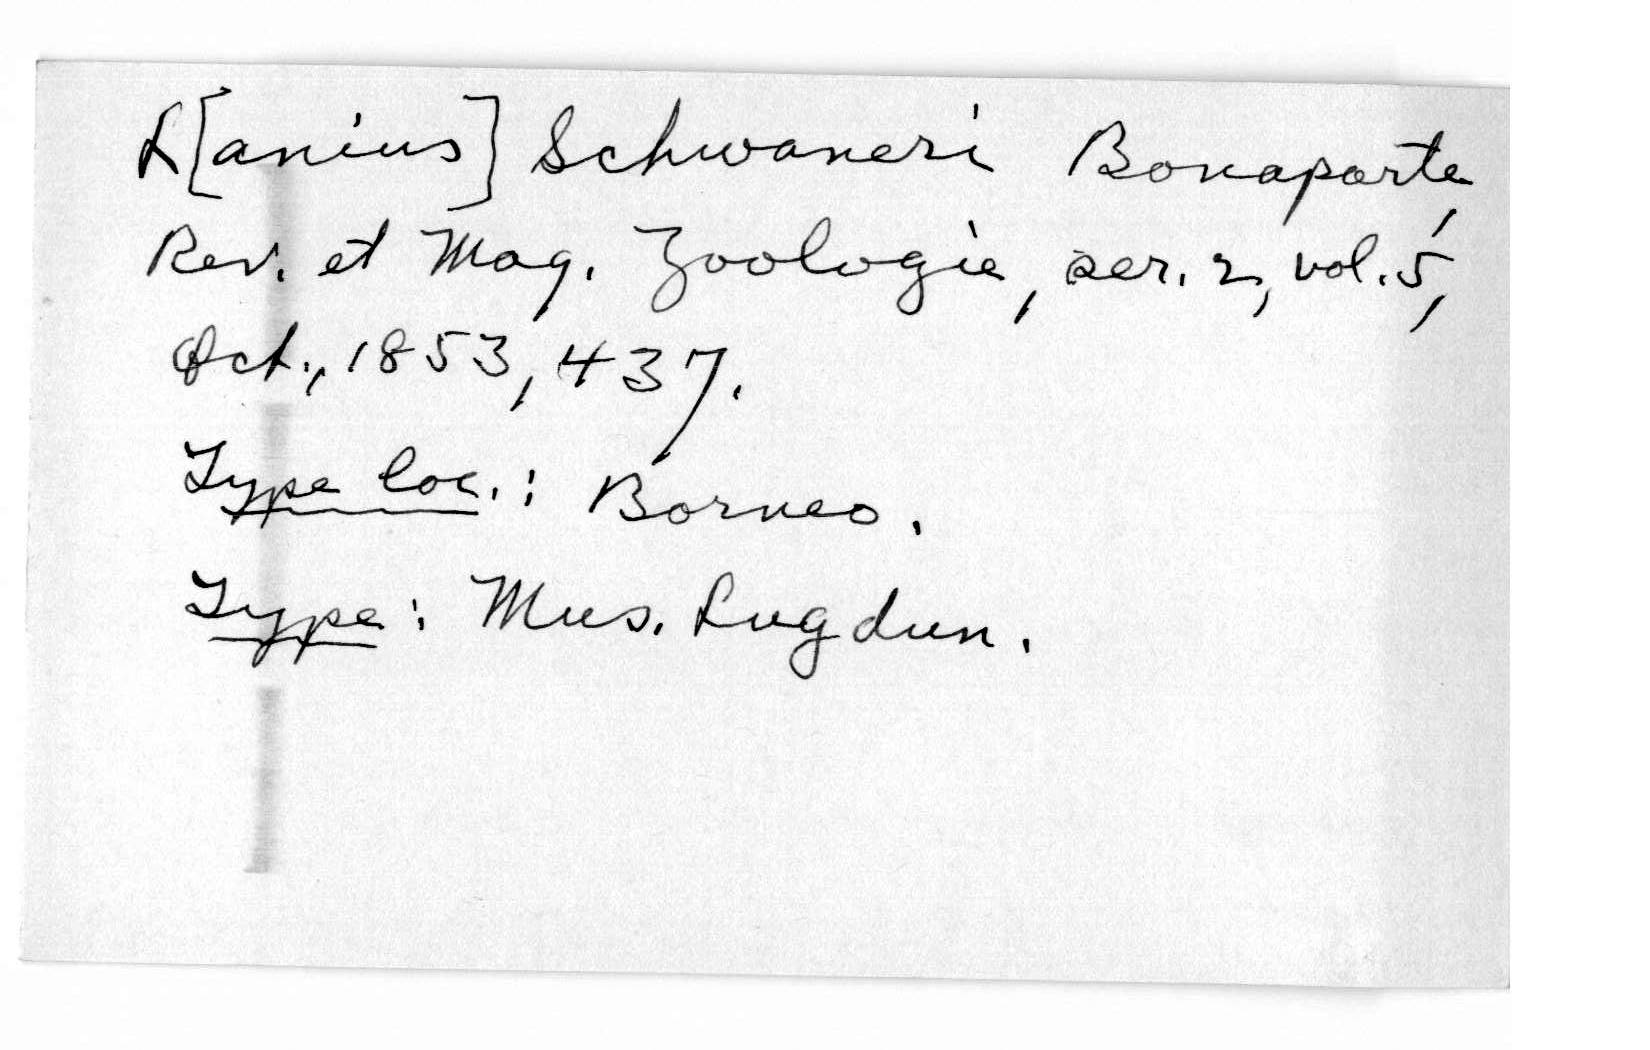 L[anius] Schwaneri Bonaparte,
Rev. et Mag. Zoologie, ser. 2, vol. 5,
Oct., 1853, 437.
Type loc.: Borneo.
Type: Mus. Lugdun.